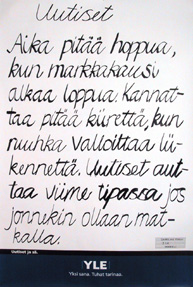 Uutiset
Aika pitää hoppua,
kun markkakausi
alkaa loppua Kannat-
taa pitää kiirettä, kun
nuuhka valloittaa lii-
kennettä. Uutiset aut-
taa viime tipassa jos
jonnekin ollaan mat-
kalla.
Uutiset ja sää.
YLE
Yksi sana. Tuhat tarinaa.